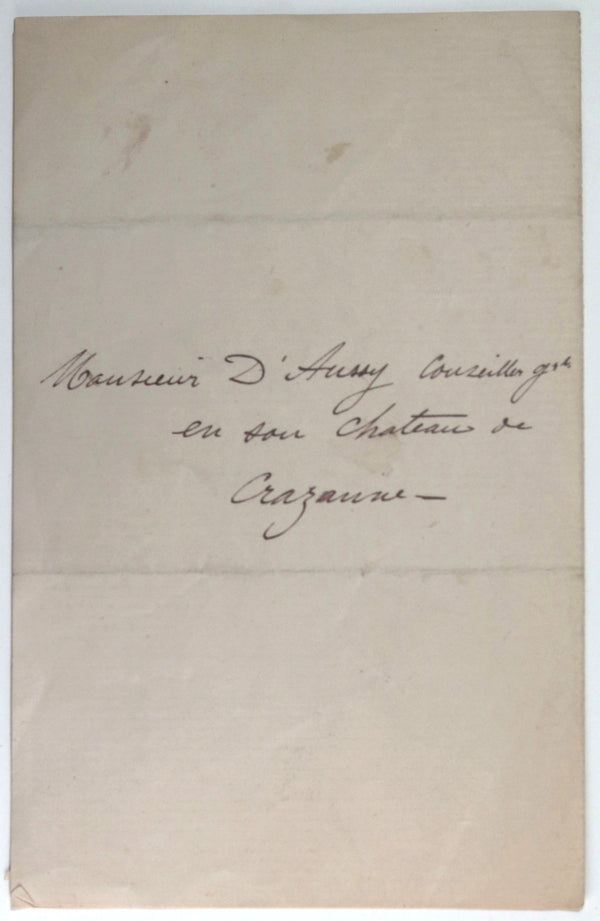 Monsieur D'Aussy Conseiller gral
en son chateau de
Crazanne —